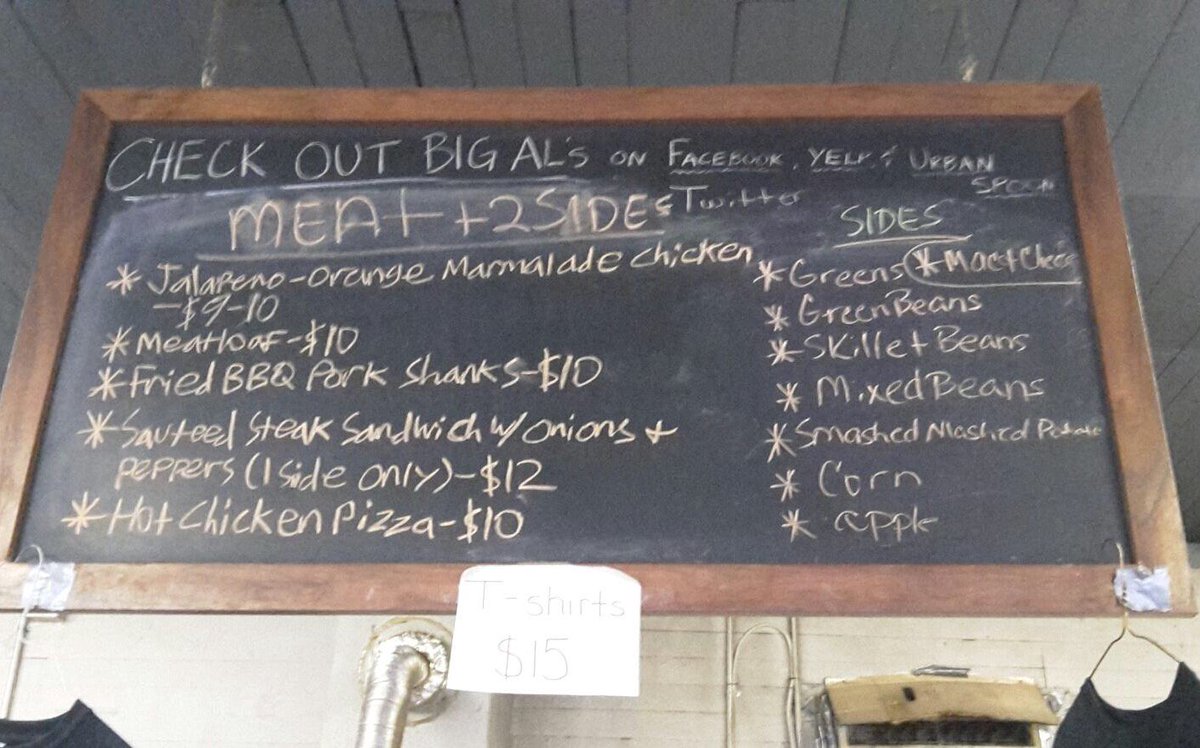 CHECK OUT BIG AL's ON FACEBOOK, YELP, & URBAN
SPOON
Twitter
MEAt + 2 SIDEs
* Jalapeno-Orange Marmalade Chicken
-$9-10
* Meatloaf-$10
* Fried BBQ Pork Shanks-$10
* Sauteed Steak Sandwich w/ onions +
peppers (1 side only)-$12
* Hot Chicken Pizza-$10
SIDES
* Greens * Mac+Chees
* Green Beans
* Skillet Beans
* Mixed Beans
* Smashed Mashed Potato
* Corn
* apple
T-shirts
$15